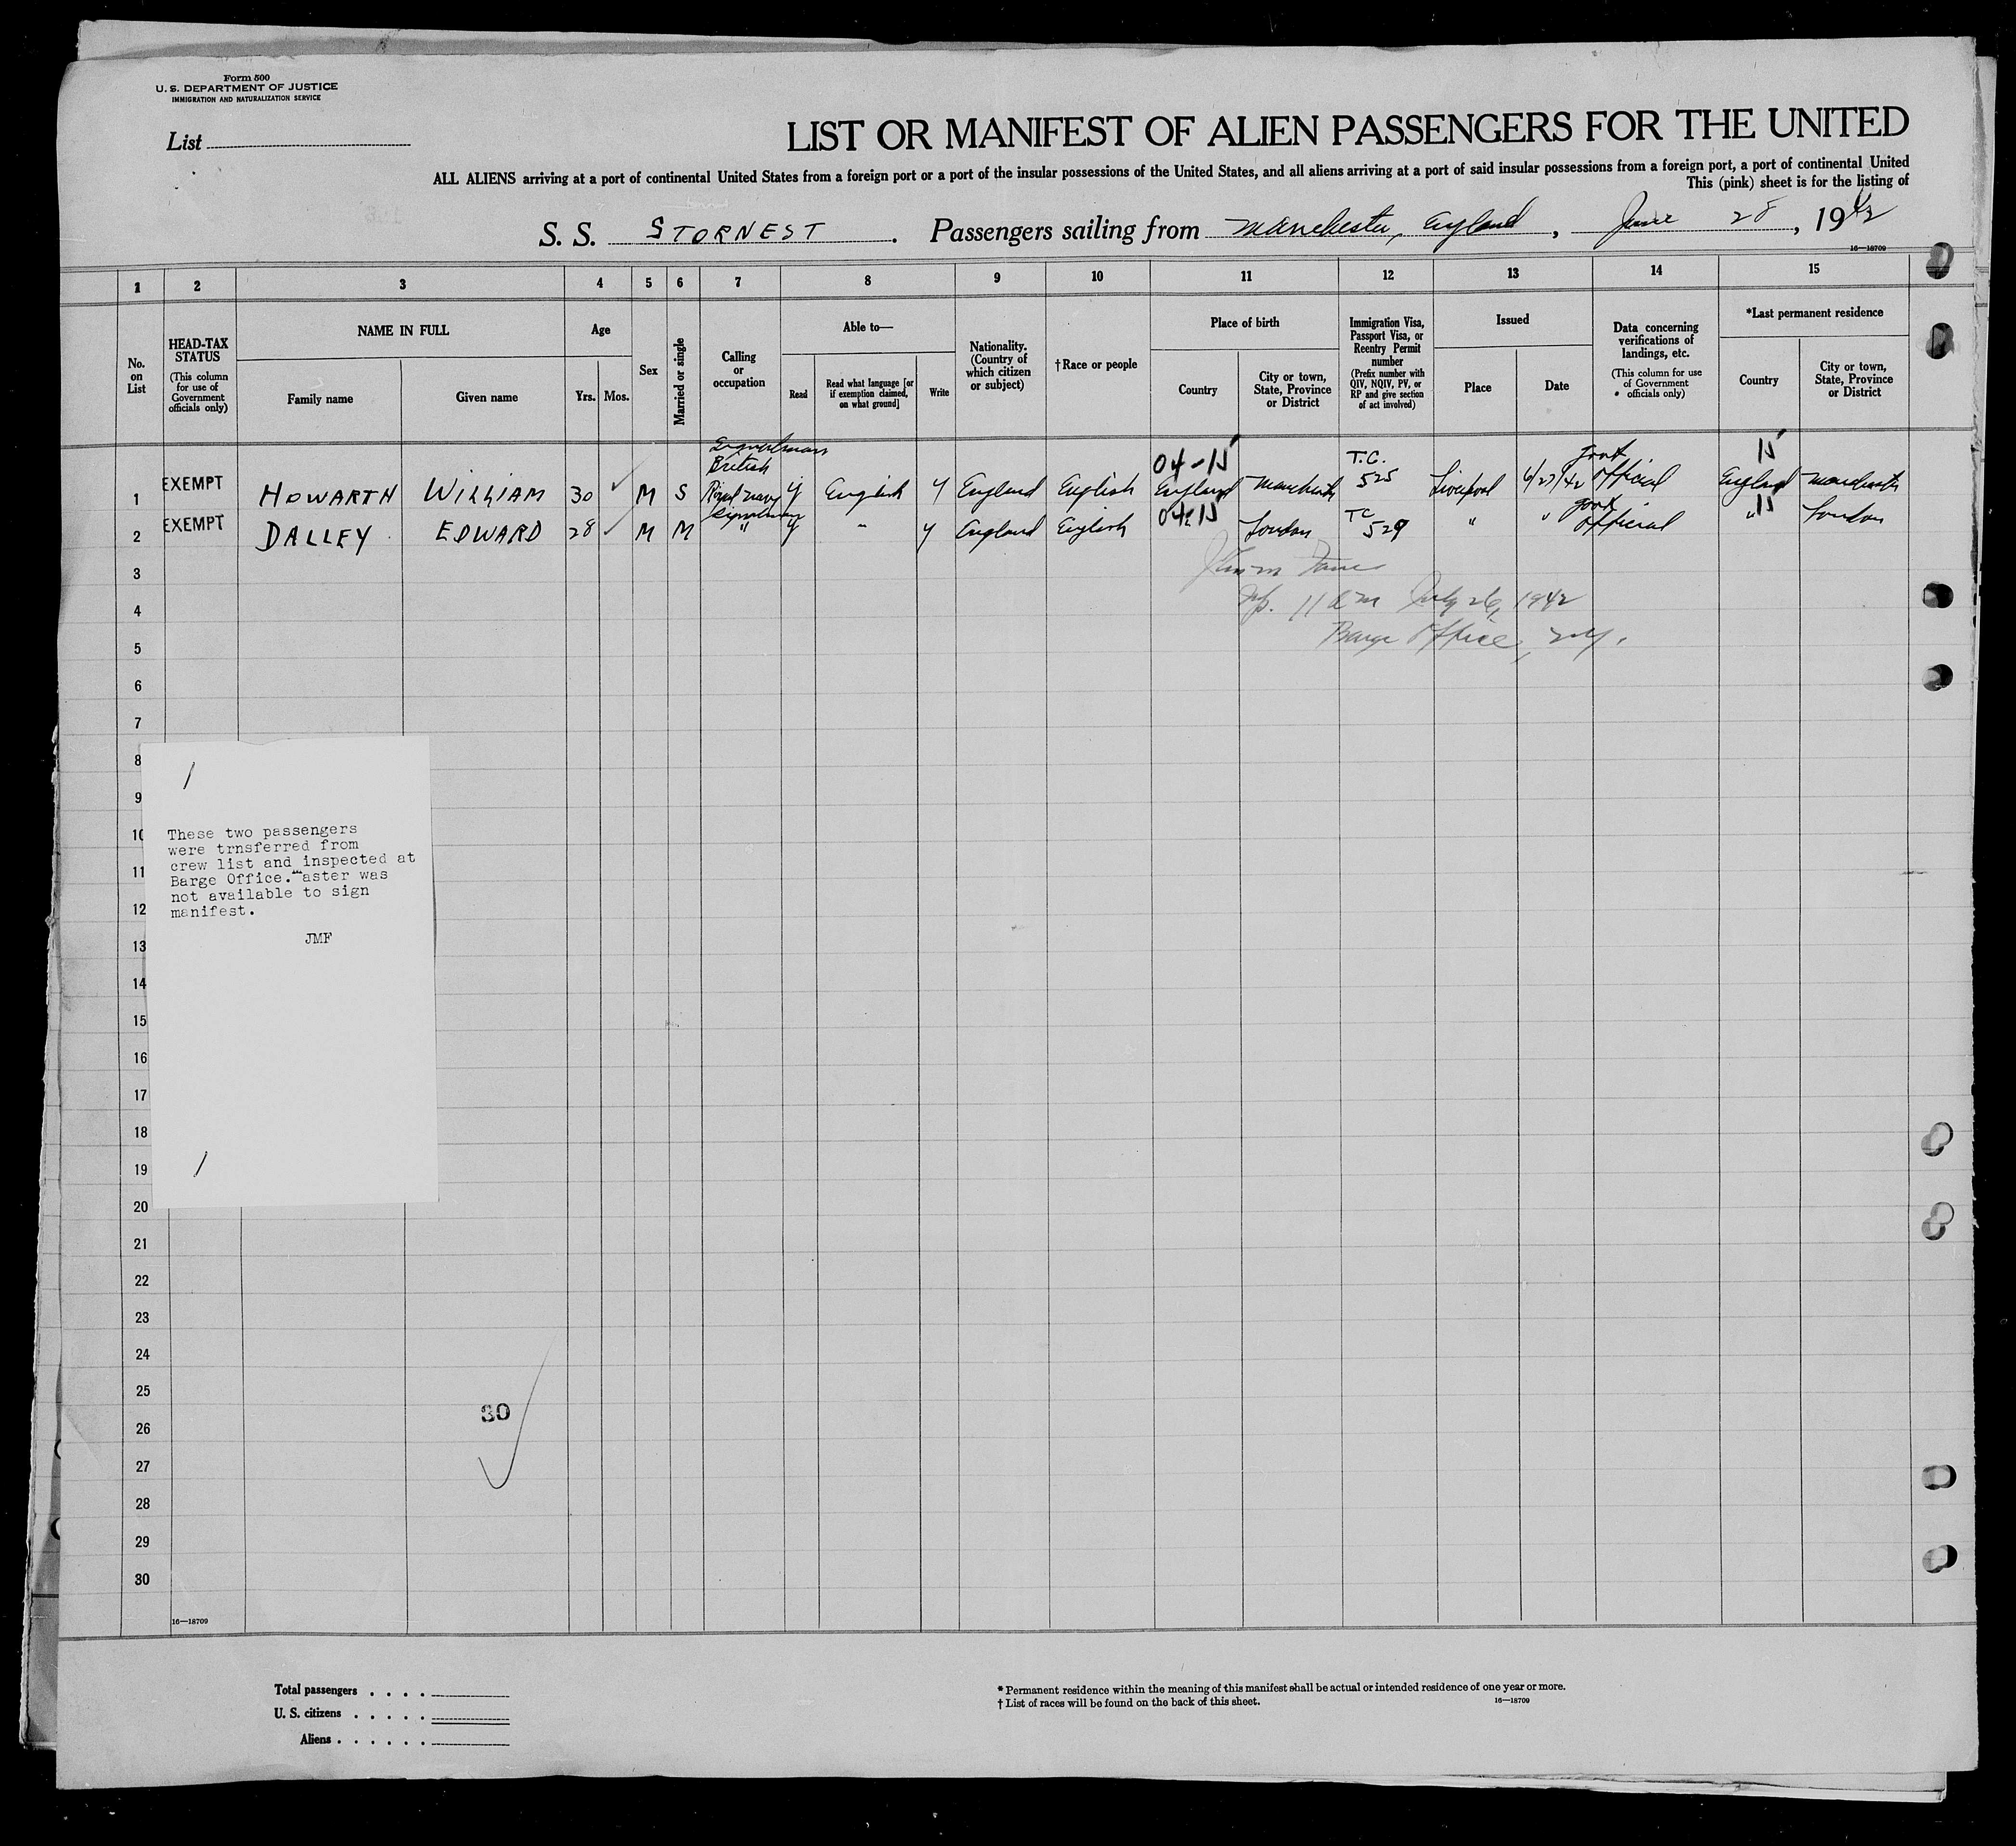 Form 500
U. S. DEPARTMENT OF JUSTICE
IMMIGRATION AND NATURALIZATION SERVICE
List
LIST OR MANIFEST OF ALIEN PASSENGERS FOR THE UNITED
ALL ALIENS arriving at a port of continental United States from a foreign port or a port of the insular possessions of the United States, and all aliens arriving at a port of said insular possessions from a foreign port, a port of continental United
This (pink) sheet is for the listing of
S. S. STORNEST . Passengers sailing from Manchester, England , June 28 , 1942
16—18709
1 2 3 4 5 6 7 8 9 10 11 12 13 14 15
No. on List
HEAD-TAX STATUS
(This column for use of Government officials only)
NAME IN FULL
Family name
Given name
Age
Yrs.
Mos.
Sex
Married or single
Calling or occupation
Able to—
Read
Read what language [or if exemption claimed, on what ground]
Write
Nationality. (Country of which citizen or subject)
†Race or people
Place of birth
Country
City or town, State, Province or District
Immigration Visa, Passport Visa, or Reentry Permit number
(Prefix number with QIV, NQIV, PV, or RP and give section of act involved)
Issued
Place
Date
Data concerning verifications of landings, etc.
(This column for use of Government officials only)
*Last permanent residence
Country
City or town, State, Province or District
Signalman
British
04-15
T.C.
Govt
15
1 EXEMPT HOWARTH WILLIAM 30 ✓ M S Royal Navy y English y England English England Manchester 525 Liverpool 6/27/42 official England Manchester
Signalman
04-15
TC
Govt
15
2 EXEMPT DALLEY EDWARD 28 ✓ M M " y " y England English " London 529 " " official " London
3
4 11 am July 26, 1942
5 Barge Office, NY.
6
7
8
9
10
11
12
13
14
15
16
17
18
19
20
21
22
23
24
25
26
27
28
29
30
/
These two passengers
were trnsferred from
crew list and inspected at
Barge Office. master was
not available to sign
manifest.
JMF
/
30
16—18709
Total passengers . . . .
U. S. citizens . . . . .
Aliens . . . . . .
* Permanent residence within the meaning of this manifest shall be actual or intended residence of one year or more.
† List of races will be found on the back of this sheet.
16—18709